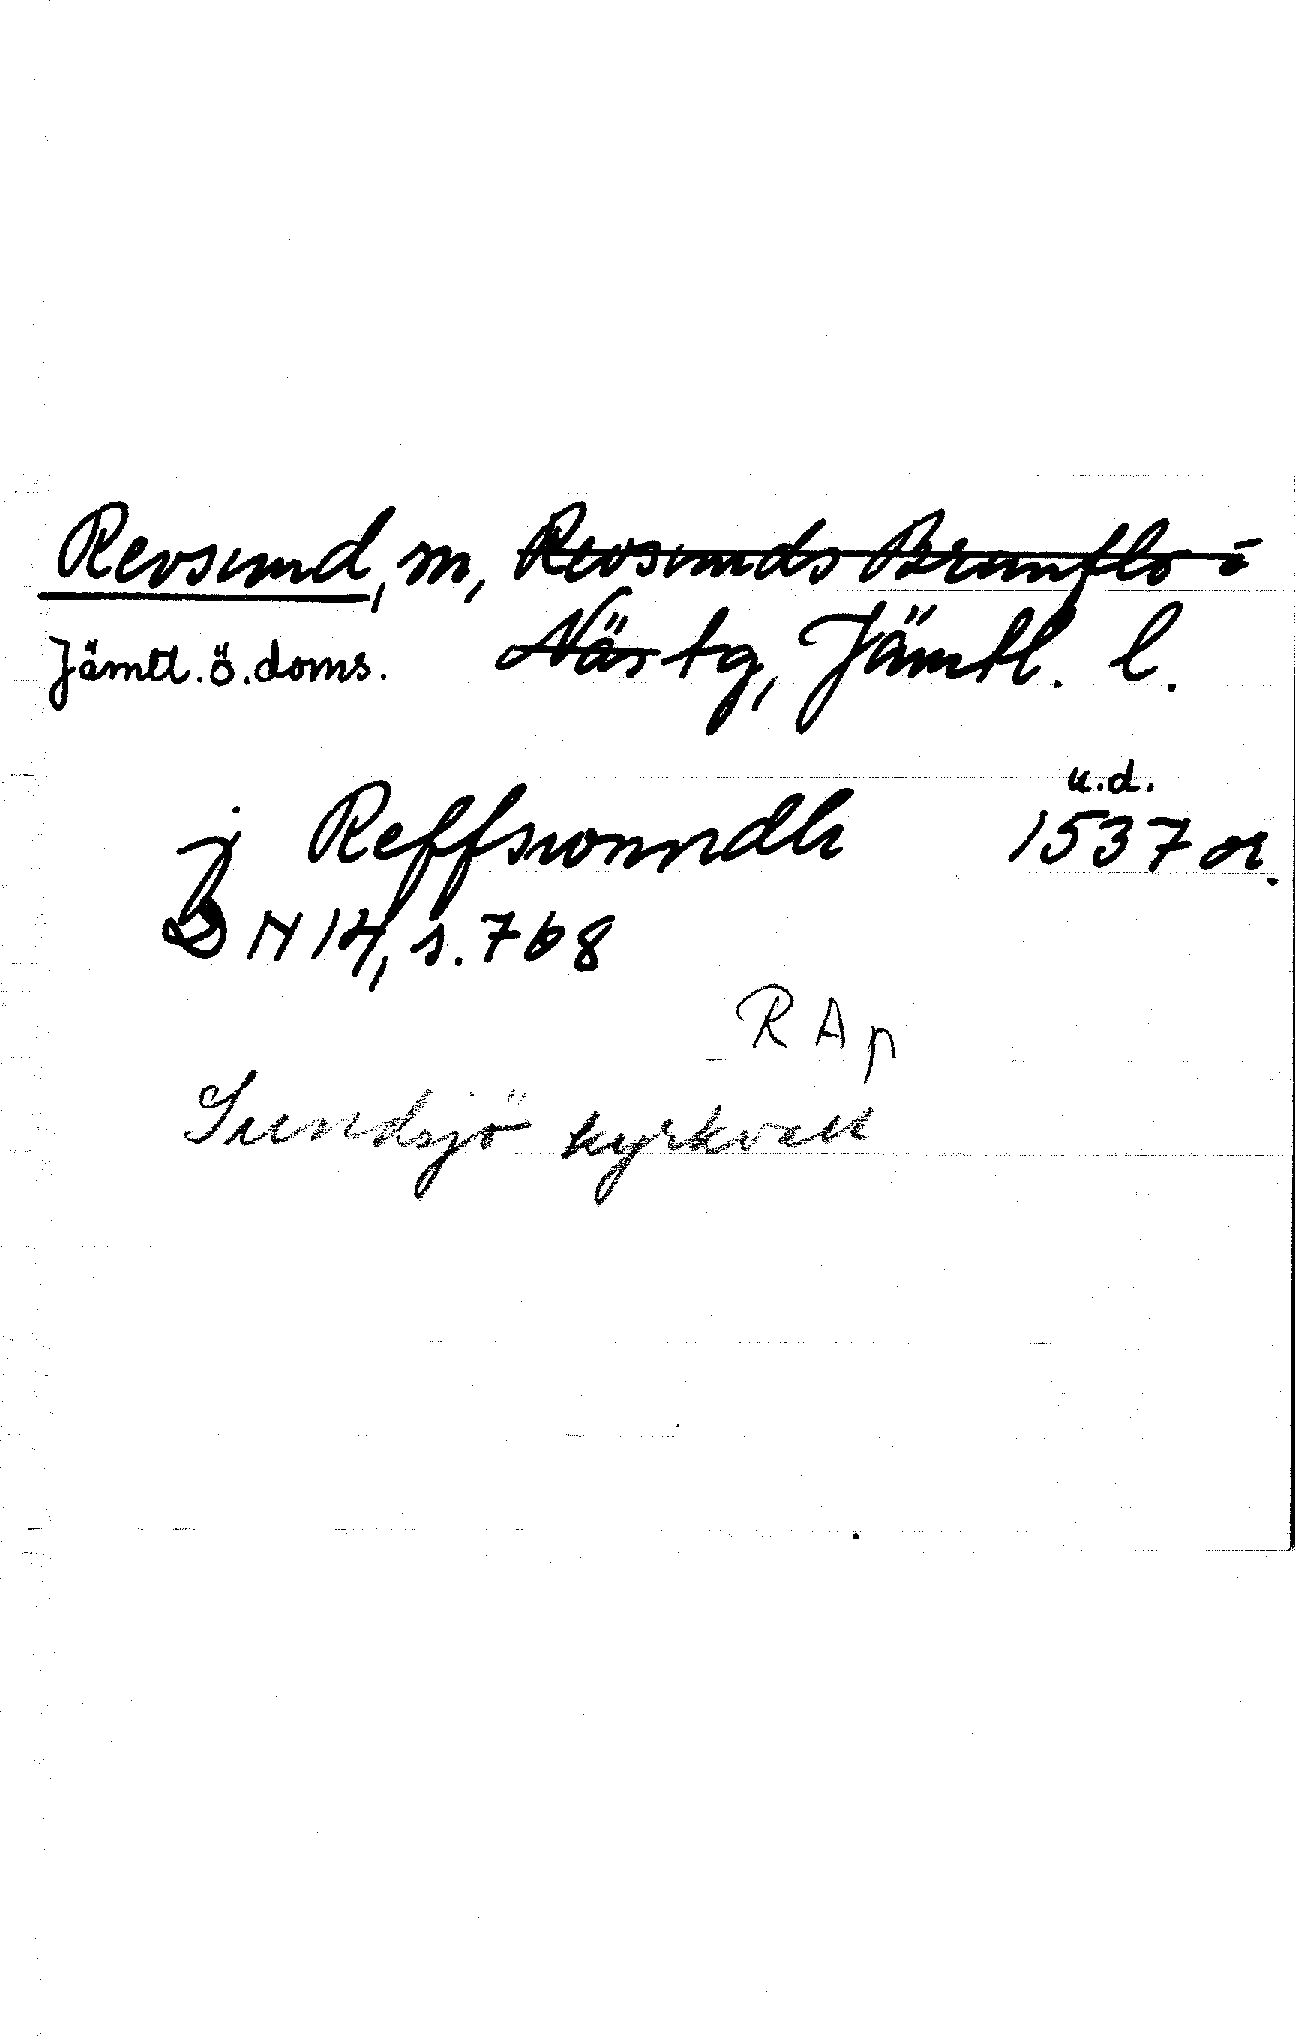 Revsund, sn, Revsunds Brunflo o
Jämtl. ö. doms. Näs tg, Jämtl. l.
u.d.
j Reffswnndh 1537 or.
DN 14, s. 768
RAp
Sundsjö kyrkvall